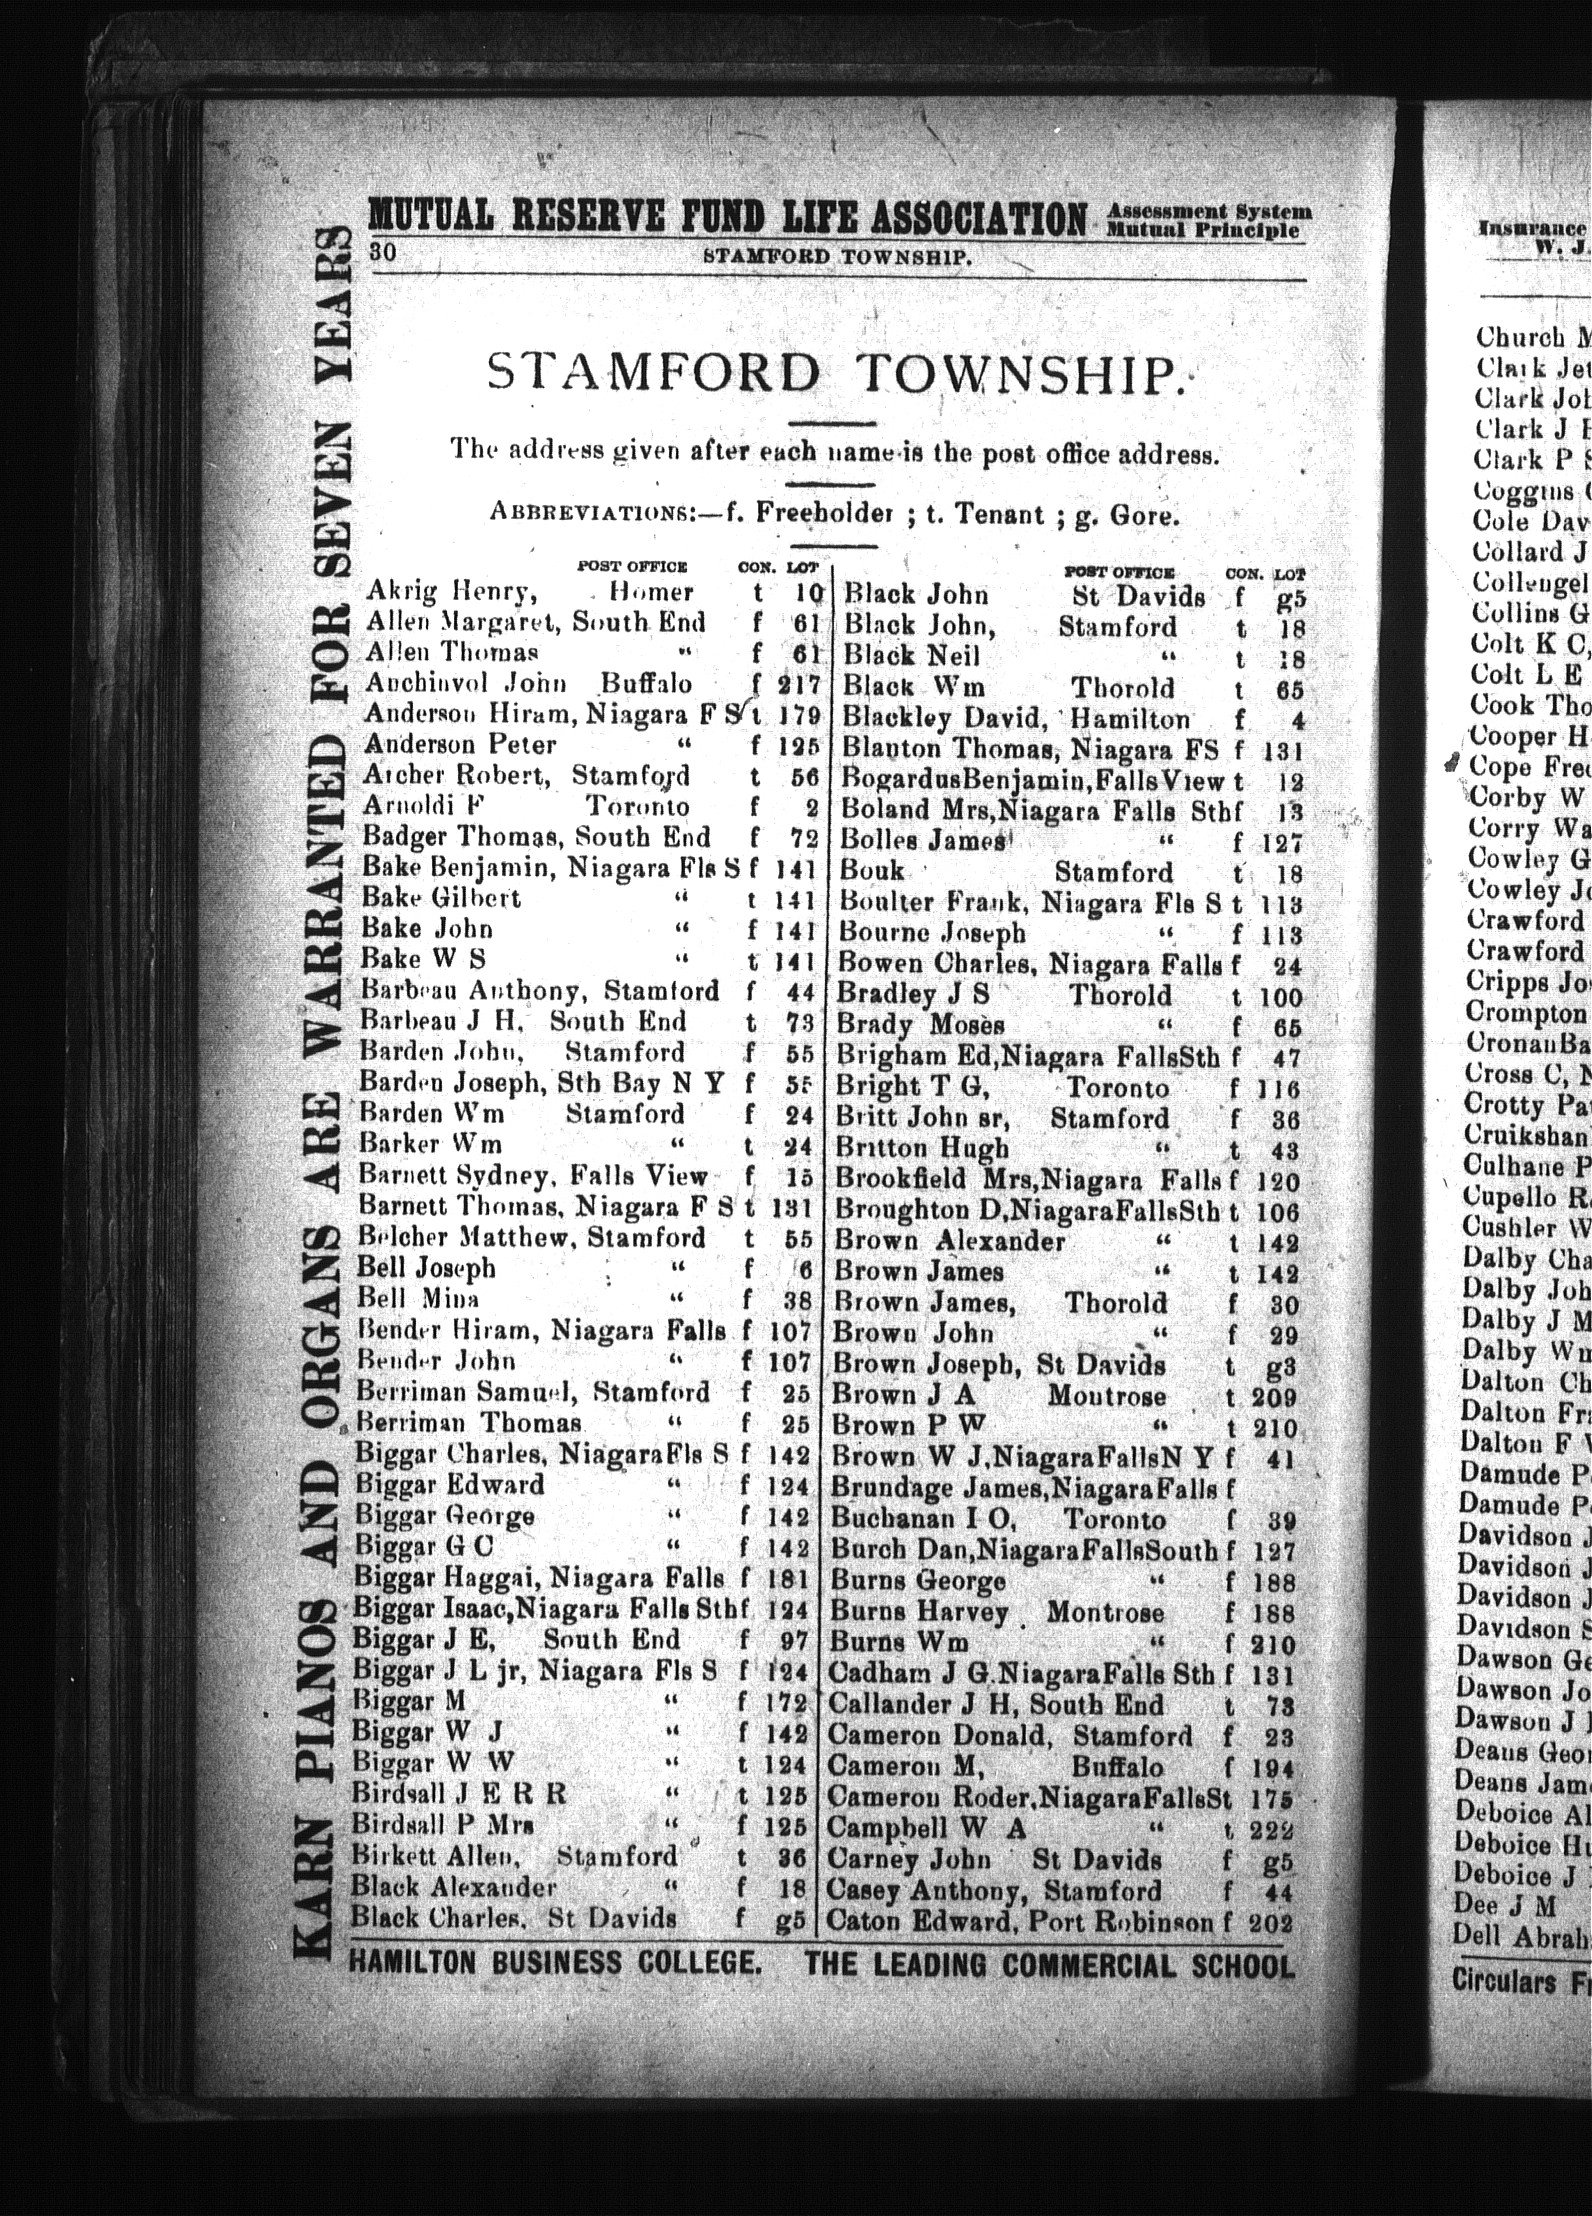 MUTUAL RESERVE FUND LIFE ASSOCIATION Assessment System
Mutual Principle
30 STAMFORD TOWNSHIP.
KARN PIANOS AND ORGANS ARE WARRANTED FOR SEVEN YEARS
STAMFORD TOWNSHIP.
The address given after each name is the post office address.
ABBREVIATIONS:—f. Freeholder ; t. Tenant ; g. Gore.
POST OFFICE CON. LOT
Akrig Henry, Homer t 10
Allen Margaret, South End f 61
Allen Thomas " f 61
Anchinvol John Buffalo f 217
Anderson Hiram, Niagara F S t 179
Anderson Peter " f 125
Archer Robert, Stamford t 56
Arnoldi F Toronto f 2
Badger Thomas, South End f 72
Bake Benjamin, Niagara Fls S f 141
Bake Gilbert " t 141
Bake John " f 141
Bake W S " t 141
Barbeau Anthony, Stamford f 44
Barbeau J H, South End t 73
Barden John, Stamford f 55
Barden Joseph, Sth Bay N Y f 55
Barden Wm Stamford f 24
Barker Wm " t 24
Barnett Sydney, Falls View f 15
Barnett Thomas, Niagara F S t 131
Belcher Matthew, Stamford t 55
Bell Joseph " f 6
Bell Mina " f 38
Bender Hiram, Niagara Falls f 107
Bender John " f 107
Berriman Samuel, Stamford f 25
Berriman Thomas " f 25
Biggar Charles, NiagaraFls S f 142
Biggar Edward " f 124
Biggar George " f 142
Biggar G C " f 142
Biggar Haggai, Niagara Falls f 181
Biggar Isaac,Niagara Falls Sthf 124
Biggar J E, South End f 97
Biggar J L jr, Niagara Fls S f 124
Biggar M " f 172
Biggar W J " f 142
Biggar W W " t 124
Birdsall J E R R " t 125
Birdsall P Mrs " f 125
Birkett Allen, Stamford t 36
Black Alexander " f 18
Black Charles, St Davids f g5
POST OFFICE CON. LOT
Black John St Davids f g5
Black John, Stamford t 18
Black Neil " t 18
Black Wm Thorold t 65
Blackley David, Hamilton f 4
Blanton Thomas, Niagara FS f 131
BogardusBenjamin,FallsView t 12
Boland Mrs,Niagara Falls Sthf 13
Bolles James " f 127
Bouk Stamford t 18
Boulter Frank, Niagara Fls S t 113
Bourne Joseph " f 113
Bowen Charles, Niagara Falls f 24
Bradley J S Thorold t 100
Brady Moses " f 65
Brigham Ed,Niagara FallsSth f 47
Bright T G, Toronto f 116
Britt John sr, Stamford f 36
Britton Hugh " t 43
Brookfield Mrs,Niagara Falls f 120
Broughton D,NiagaraFallsSth t 106
Brown Alexander " t 142
Brown James " t 142
Brown James, Thorold f 30
Brown John " f 29
Brown Joseph, St Davids t g3
Brown J A Montrose t 209
Brown P W " t 210
Brown W J,NiagaraFallsN Y f 41
Brundage James,NiagaraFalls f
Buchanan I O, Toronto f 39
Burch Dan,NiagaraFallsSouth f 127
Burns George " f 188
Burns Harvey Montrose f 188
Burns Wm " f 210
Cadham J G.NiagaraFalls Sth f 131
Callander J H, South End t 73
Cameron Donald, Stamford f 23
Cameron M, Buffalo f 194
Cameron Roder,NiagaraFallsSt 175
Campbell W A " t 222
Carney John St Davids f g5
Casey Anthony, Stamford f 44
Caton Edward, Port Robinson f 202
HAMILTON BUSINESS COLLEGE. THE LEADING COMMERCIAL SCHOOL
Insurance
W. J.
Church M
Clark Jet
Clark Joh
Clark J
Clark P S
Coggins
Cole Dav
Collard J
Collengel
Collins G
Colt K C,
Colt L E
Cook Tho
Cooper H
Cope Fred
Corby W
Corry Wa
Cowley G
Cowley Jo
Crawford
Crawford
Cripps Jo
Crompton
CronanBa
Cross C, N
Crotty Pa
Cruikshan
Culhane P
Cupello R
Cushler W
Dalby Cha
Dalby Joh
Dalby J M
Dalby Wm
Dalton Ch
Dalton Fra
Dalton F
Damude P
Damude P
Davidson J
Davidson J
Davidson J
Davidson S
Dawson Ge
Dawson Jo
Dawson J
Deans Geor
Deans Jam
Deboice Al
Deboice Hu
Deboice J
Dee J M
Dell Abrah
Circulars Fr